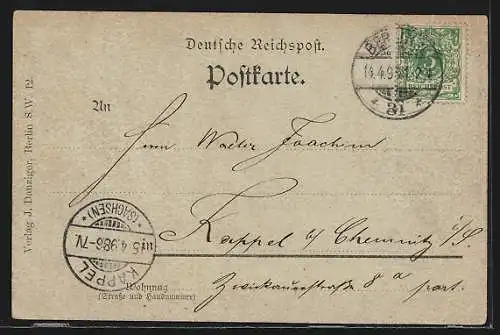 Deutsche Reichspost.
Postkarte.
An
Herrn Walter Joachim
Kappel b/ Chemnitz i/S.
Wohnung
(Straße und Hausnummer)
Zwickauerstraße 8a part.
Verlag J. Danziger, Berlin S.W. 12.
KAPPEL
* (SACHSEN) *
15.4.98 6-7N.
* 31 *